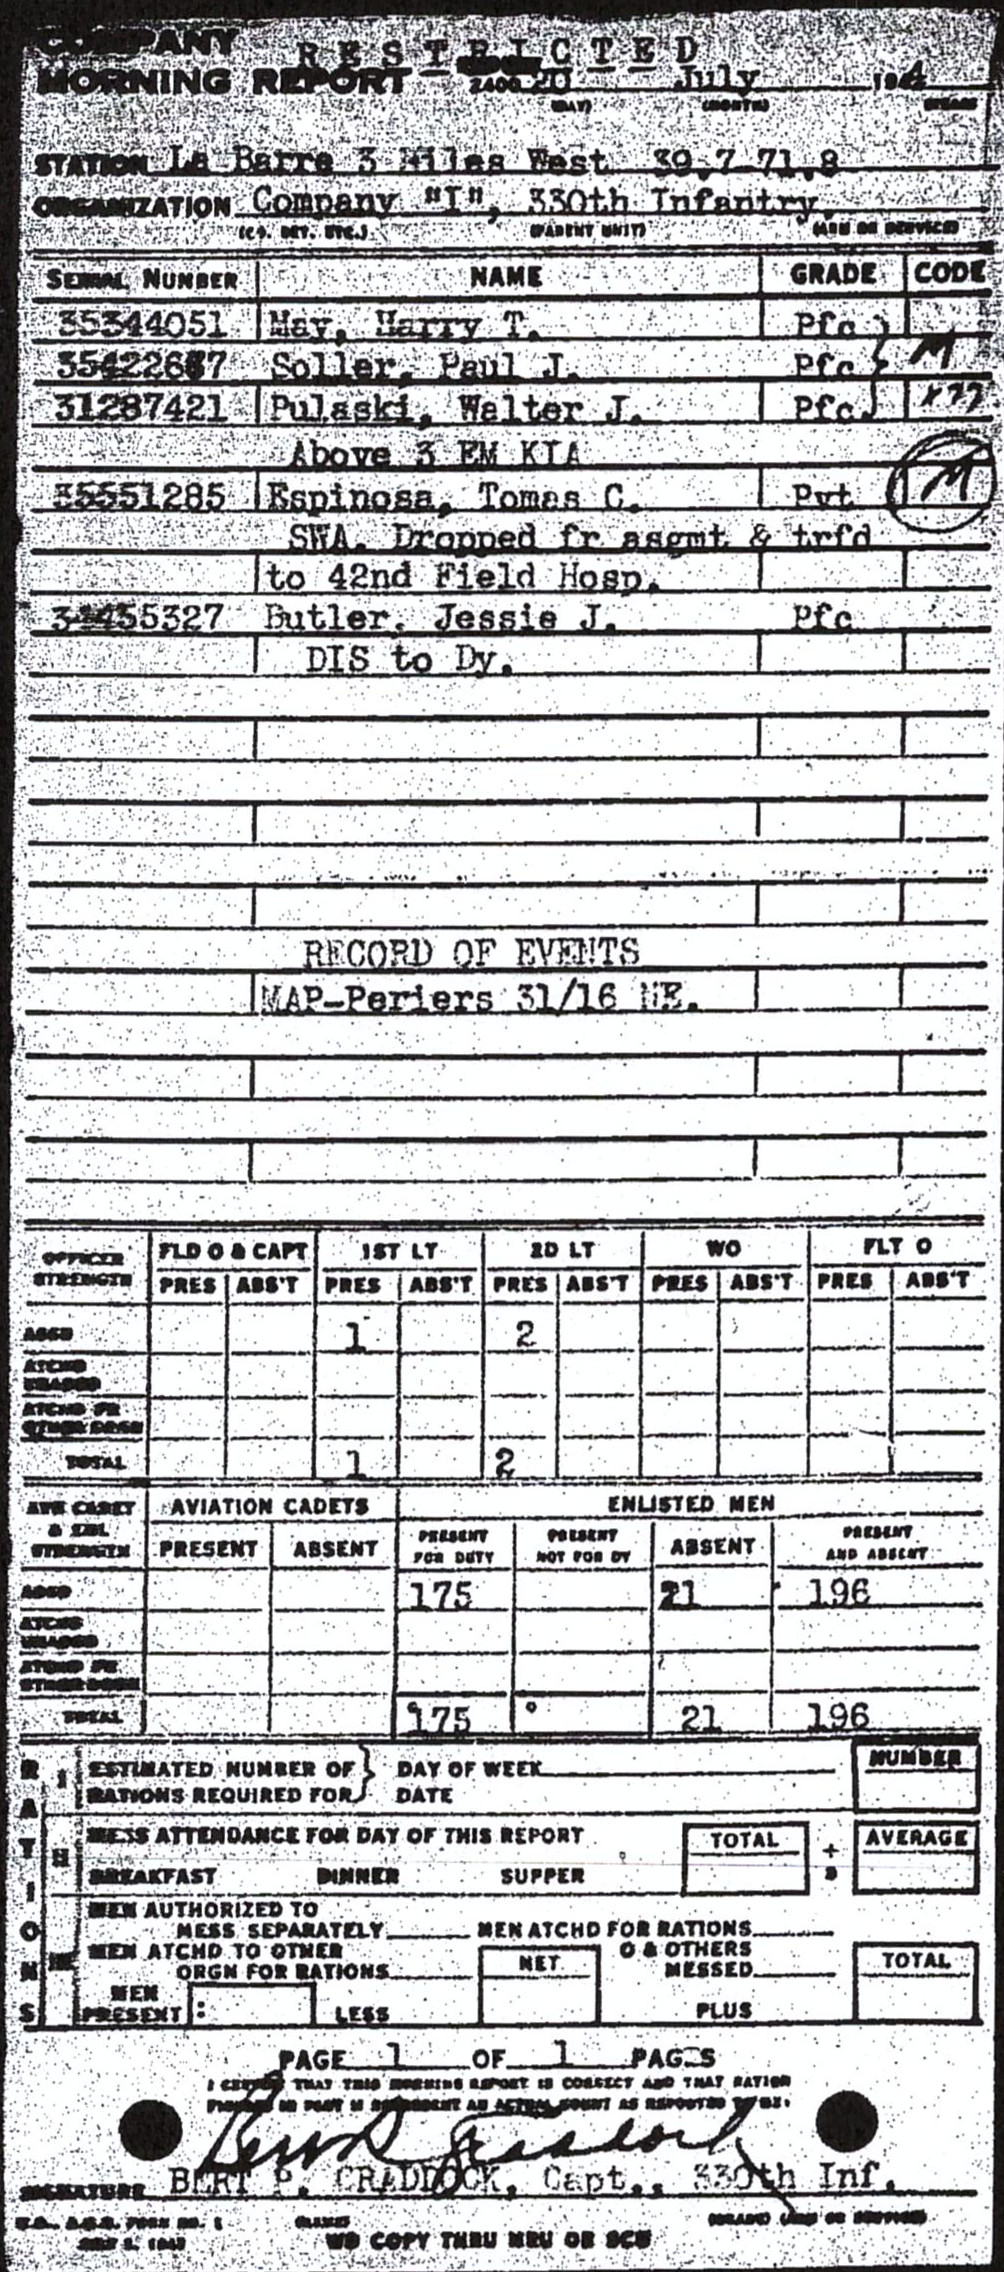 COMPANY
RESTRICTED
MORNING REPORT 2400 20 July 1944
(DAY) (MONTH) (YEAR)
STATION La Barre 3 Miles West 39.7-71.8
ORGANIZATION Company "I", 330th Infantry.
(CO. DET. ETC.) (PARENT UNIT) (ARM OR SERVICE)
SERIAL NUMBER NAME GRADE CODE
35344051 May, Harry T. Pfc
35422687 Soller, Paul J. Pfc M
31287421 Pulaski, Walter J. Pfc
Above 3 EM KIA
35551285 Espinosa, Tomas C. Pvt M
SWA. Dropped fr asgmt & trfd
to 42nd Field Hosp.
34455327 Butler, Jessie J. Pfc
DIS to Dy.
RECORD OF EVENTS
MAP-Periers 31/16 NE.
OFFICER STRENGTH FLD O & CAPT 1ST LT 2D LT WO FLT O
PRES ABS'T PRES ABS'T PRES ABS'T PRES ABS'T PRES ABS'T
ASGD 1 2
ATCHD UNASGD
ATCHD FR OTHER ORGN
TOTAL 1 2
AVN CADET & ENL STRENGTH AVIATION CADETS ENLISTED MEN
PRESENT ABSENT PRESENT FOR DUTY PRESENT NOT FOR DY ABSENT PRESENT AND ABSENT
ASGD 175 21 196
ATCHD UNASGD
ATCHD FR OTHER ORGN
TOTAL 175 21 196
RATIONS
I ESTIMATED NUMBER OF DAY OF WEEK NUMBER
RATIONS REQUIRED FOR DATE
II MESS ATTENDANCE FOR DAY OF THIS REPORT TOTAL ÷ 3 AVERAGE
BREAKFAST DINNER SUPPER
III MEN AUTHORIZED TO
MESS SEPARATELY MEN ATCHD FOR RATIONS
MEN ATCHD TO OTHER NET O & OTHERS TOTAL
ORGN FOR RATIONS MESSED
MEN PRESENT : LESS PLUS
PAGE 1 OF 1 PAGES
I CERTIFY THAT THIS MORNING REPORT IS CORRECT AND THAT RATION
FIGURES IN PART II REPRESENT AN ACTUAL COUNT AS REPORTED TO ME.
Bert P. Craddock
SIGNATURE BERT P. CRADDOCK, Capt., 330th Inf.
W.D., A.G.O. FORM NO. 1 (NAME) (GRADE) (ARM OR SERVICE)
WD COPY THRU MRU OR SCU